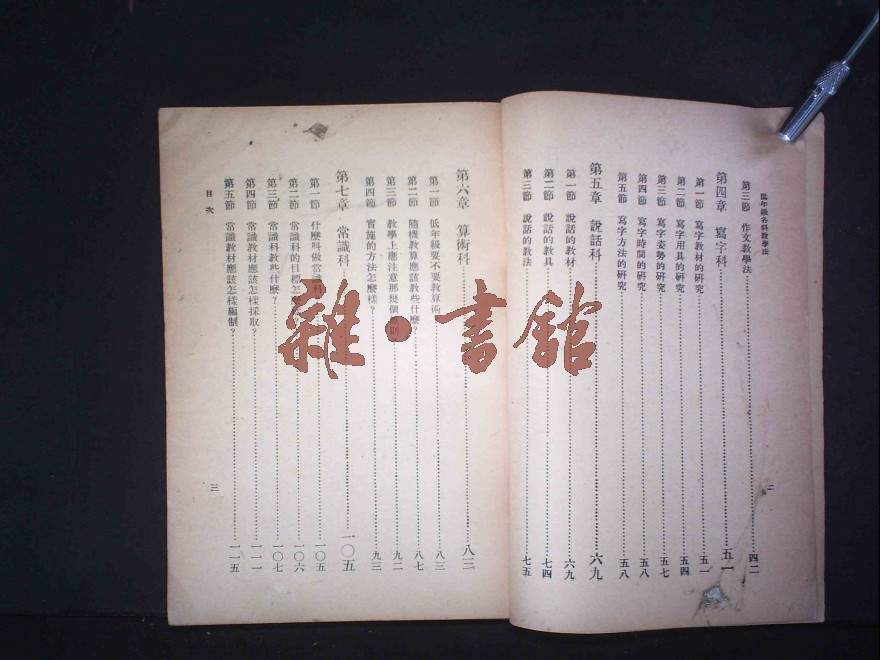 低年級各科教學法
第三節 作文教學法 四二
第四章 寫字科 五一
第一節 寫字教材的研究 五一
第二節 寫字用具的研究 五四
第三節 寫字姿勢的研究 五七
第四節 寫字時間的研究 五八
第五節 寫字方法的研究 五八
第五章 說話科 六九
第一節 說話的教材 六九
第二節 說話的教具 七四
第三節 說話的教法 七五
二
第六章 算術科 八三
第一節 低年級要不要教算術 八三
第二節 隨機教算應該教些什麼？ 八七
第三節 教學上應注意那幾個原則 九二
第四節 實施的方法怎麼樣？ 九三
第七章 常識科 一〇五
第一節 什麼叫做常識科 一〇五
第二節 常識科的目標怎 一〇六
第三節 常識科教些什麼？ 一〇七
第四節 常識教材應該怎樣採取？ 一一一
第五節 常識教材應該怎樣編制？ 一一五
目次
三
雜·書館